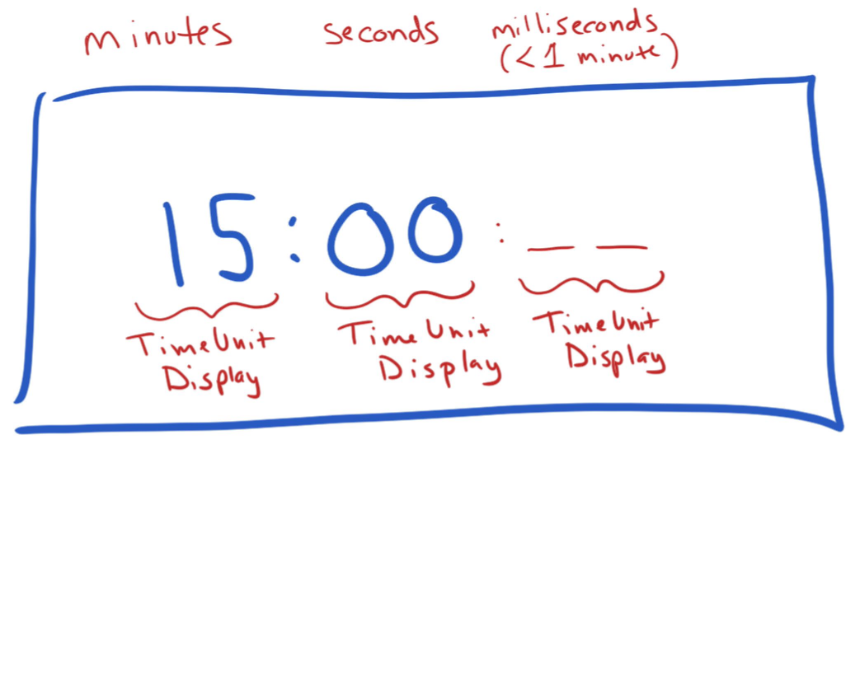 minutes seconds milliseconds
(<1 minute)
15:00:__ __
TimeUnit TimeUnit TimeUnit
Display Display Display